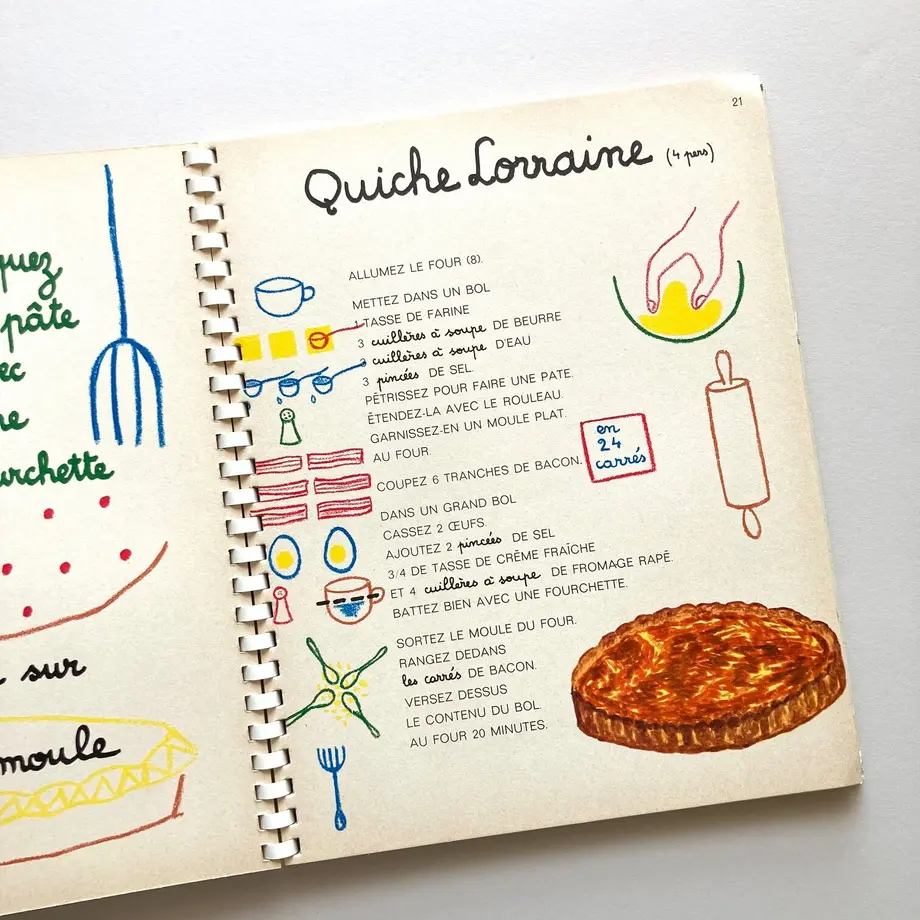 quez
pâte
ec
ne
urchette
sur
moule
21
Quiche Lorraine (4 pers)
ALLUMEZ LE FOUR (8).
METTEZ DANS UN BOL
1 TASSE DE FARINE
3 cuillères à soupe DE BEURRE
3 cuillères à soupe D'EAU
3 pincées DE SEL.
PÉTRISSEZ POUR FAIRE UNE PATE.
ÉTENDEZ-LA AVEC LE ROULEAU.
GARNISSEZ-EN UN MOULE PLAT.
AU FOUR.
COUPEZ 6 TRANCHES DE BACON.
en
24
carrés
DANS UN GRAND BOL
CASSEZ 2 ŒUFS.
AJOUTEZ 2 pincées DE SEL
3/4 DE TASSE DE CRÈME FRAÎCHE
ET 4 cuillères à soupe DE FROMAGE RAPÉ.
BATTEZ BIEN AVEC UNE FOURCHETTE.
SORTEZ LE MOULE DU FOUR.
RANGEZ DEDANS
les carrés DE BACON.
VERSEZ DESSUS
LE CONTENU DU BOL
AU FOUR 20 MINUTES.